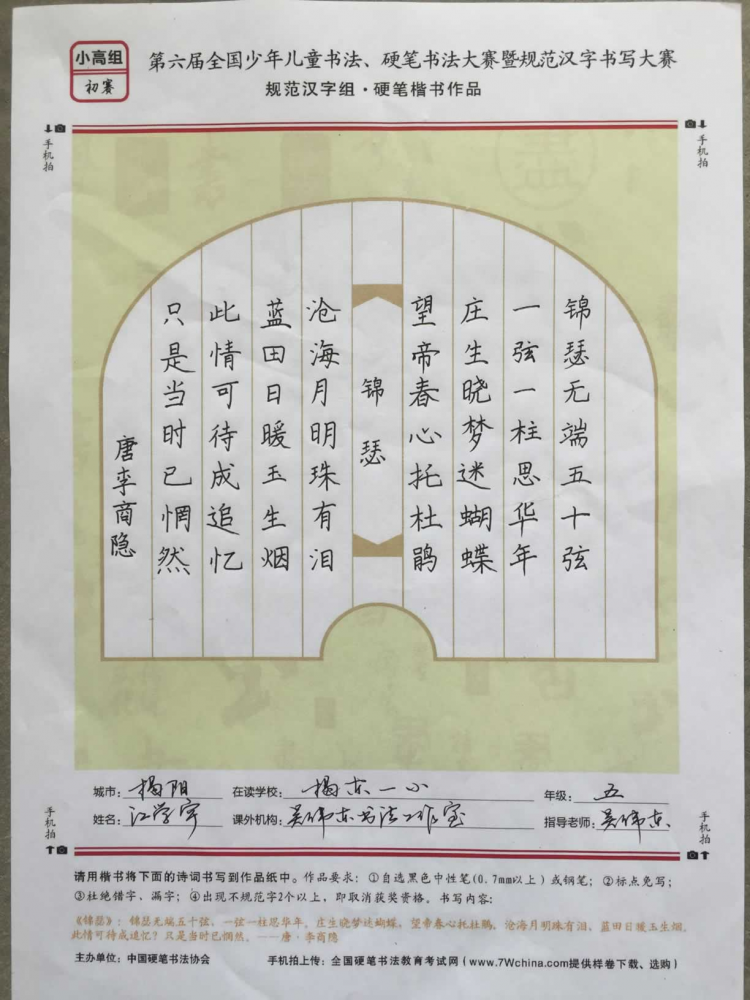 小高组
初赛
第六届全国少年儿童书法、硬笔书法大赛暨规范汉字书写大赛
规范汉字组·硬笔楷书作品
手机拍
手机拍
锦瑟无端五十弦
一弦一柱思华年
庄生晓梦迷蝴蝶
望帝春心托杜鹃
锦瑟
沧海月明珠有泪
蓝田日暖玉生烟
此情可待成追忆
只是当时已惘然
唐李商隐
手机拍
手机拍
城市：揭阳 在读学校：揭东一小 年级：五
姓名：江学宇 课外机构：吴伟东书法工作室 指导老师：吴伟东
请用楷书将下面的诗词书写到作品纸中。作品要求：①自选黑色中性笔(0.7mm以上）或钢笔；②标点免写；
③杜绝错字、漏字；④出现不规范字2个以上，即取消获奖资格。书写内容：
《锦瑟》：锦瑟无端五十弦，一弦一柱思华年。庄生晓梦迷蝴蝶，望帝春心托杜鹃。沧海月明珠有泪，蓝田日暖玉生烟。
此情可待成追忆？只是当时已惘然。——唐·李商隐
主办单位：中国硬笔书法协会 手机拍上传：全国硬笔书法教育考试网（www.7Wchina.com提供样卷下载、选购）